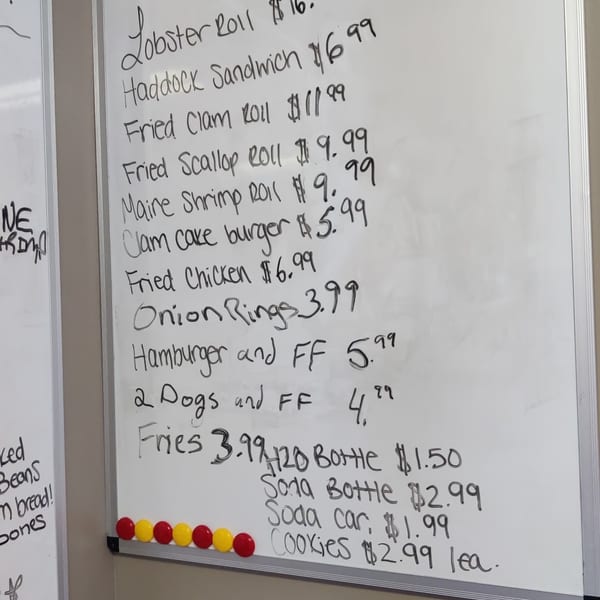 Lobster Roll $16.
Haddock Sandwich $6.99
Fried Clam Roll $11.99
Fried Scallop Roll $9.99
Maine Shrimp Roll $9.99
Clam cake burger $5.99
Fried Chicken $6.99
Onion Rings 3.99
Hamburger and FF 5.99
2 Dogs and FF 4.99
Fries 3.99
H20 Bottle $1.50
Soda Bottle $2.99
Soda can $1.99
Cookies $2.99 /ea.
NE
Beans
bread!
bones